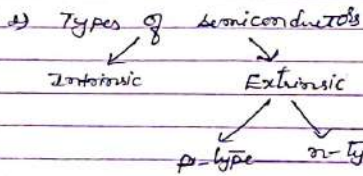 2) Types of semiconductors
Intrinsic Extrinsic
p-type n-ty